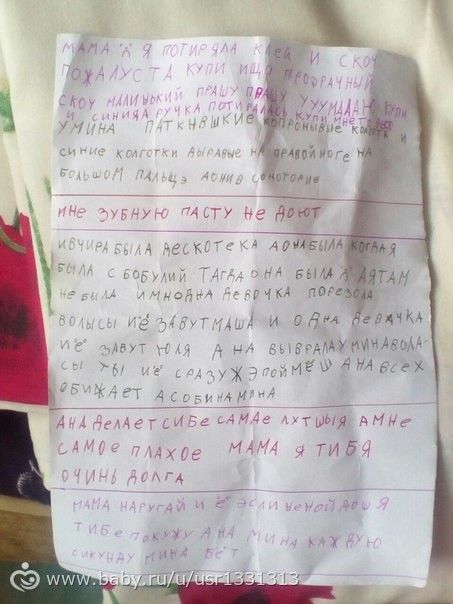 МАМА Ã Я ПОТИРЯЛА КЛЕЙ И СКОЧ
ПОЖАЛУСТА КУПИ ИЩО ПРОЗРАЧНЫЙ
СКОЧ МАЛИНЬКИЙ ПРАШУ ПРАШУ УУУМАЛАЮ КУПИ
И СИНИЯЯ РУЧКА ПОТИРАЛАСЬ КУПИ
У МИНА ПАТКНВШКИЕ КОПРОНЫВЫЕ КОЛГОТК И
СИНИЕ КОЛГОТКИ ДЫРАВЫЕ НА ПРАВОЙ НОГЕ НА
БОЛЬШОМ ПАЛЬЦЭ АОНИ В СОНОТОРИЕ
МНЕ ЗУБНУЮ ПАСТУ НЕ ДОЮТ
И ВЧИРА БЫЛА ДЕСКОТЕКА АОНА БЫЛА КОГДАЯ
БЫЛА С БОБУЛИЙ ТАГДА ОНА БЫЛА Ã АЯТАМ
НЕ БЫЛА И МНОДНА ДЕВОЧКА ПОРЕЗОЛА
ВОЛЫСЫ ИЁ ЗАВУТ МАША И ОДНА ДЕВАЧКА
ИЁ ЗАВУТ ЮЛЯ АНА ВЫВРАЛА УМИНА ВОЛА-
СЫ ТЫ ИЁ СРАЗУЖ ЭПОЙМЁШ АНА ВСЕХ
ОБИЖАЕТ А СОБИНА МИНА
АНА ДЕЛАЕТ СИБЕ САМАЕ ЛУТШЫЯ АМНЕ
САМОЕ ПЛАХОЕ МАМА Я ТИБЯ
ОЧИНЬ ДОЛГА
МАМА НАРУГАЙ ИЁ ЭСЛИ НЕНОЙДОШ Я
ТИБЕ ПОКУЖУ АНА МИНА КАЖДУЮ
СИКУНДУ МИНА БЁТ
www.baby.ru/u/usr1331313